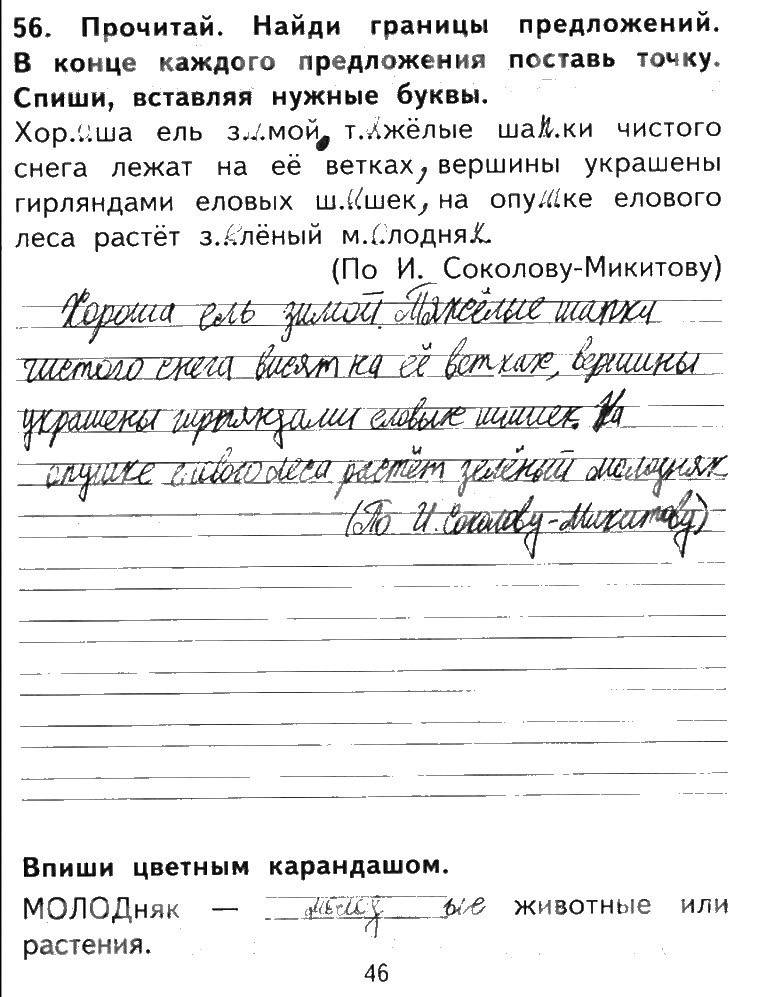 56. Прочитай. Найди границы предложений.
В конце каждого предложения поставь точку.
Спиши, вставляя нужные буквы.
Хор.о.ша ель з.и.мой, т.яжёлые шап.ки чистого
снега лежат на её ветках, вершины украшены
гирляндами еловых ш.ишек, на опушке елового
леса растёт з.елёный м.олодняк.
(По И. Соколову-Микитову)
Хороша ель зимой. Тяжёлые шапки
чистого снега висят на её ветках, вершины
украшены гирляндами еловых шишек. На
опушке елового леса растёт зелёный молодняк
(По И. Соколову-Микитову)
Впиши цветным карандашом.
МОЛОДняк — молод ые животные или
растения.
46